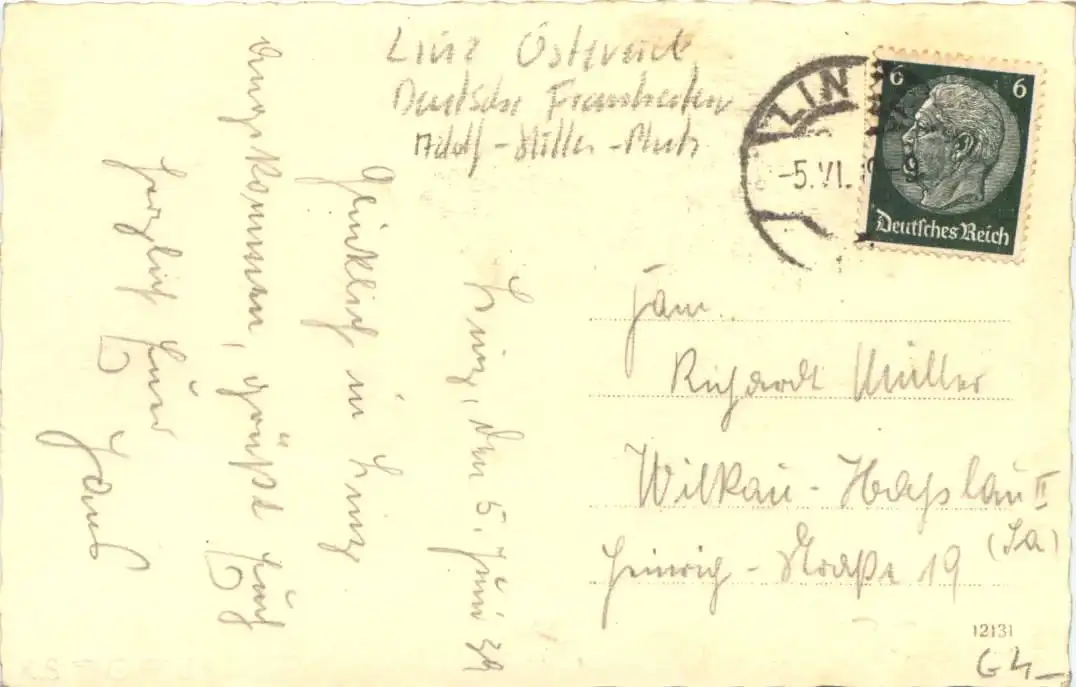 Linz Östereich
Deutsche
Adolf-Hitler-Platz
LINZ
-5.VI.
6 6
Deutsches Reich
Linz, den 5. Juni 39
Glücklich in Linz
angekommen, grüßt Euch
herzlich Euer
Hans
Fam.
Richardt Müller
Wilkau-Haßlau II
(Sa)
Heinrich-Straße 19
12131